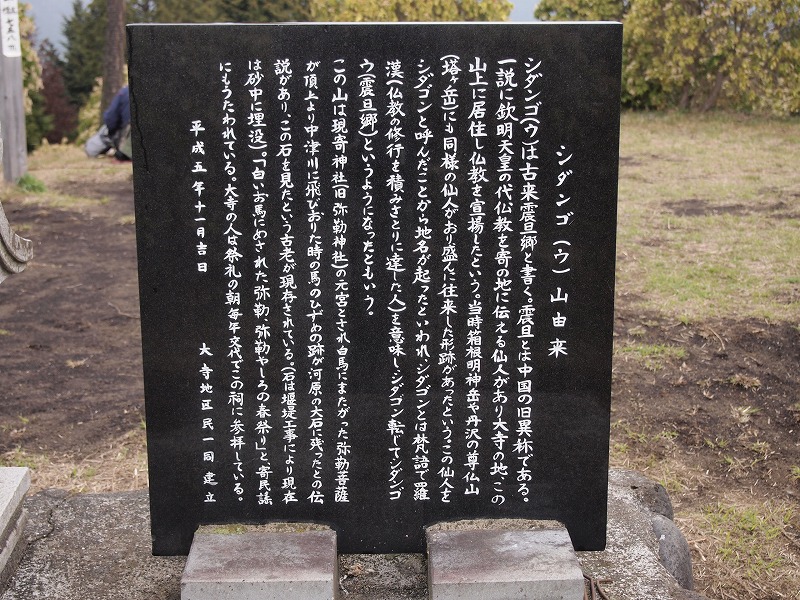 シダンゴ(ウ)山由来
シダンゴ(ウ)は古来震旦郷と書く。震旦とは中国の旧異称である。
一説に欽明天皇の代仏教を寄の地に伝える仙人があり大寺の地、この
山上に居住し仏教を宣揚したという。当時箱根明神岳や丹沢の尊仏山
(塔ヶ岳)にも同様の仙人がおり盛んに往来した形跡があったという。この仙人を
シダゴンと呼んだことから地名が起ったといわれ、シダゴンとは梵語で羅
漢(仏教の修行を積みさとりに達した人)を意味し、シダゴン転じてシダンゴ
ウ(震旦郷)というようになったともいう。
この山は現寄神社(旧弥勒神社)の元宮とされ白馬にまたがった弥勒菩薩
が頂上より中津川に飛びおりた時の馬のひづめの跡が河原の大石に残ったとの伝
説があり、この石を見たという古老が現存されている。(石は堰堤工事により現在
は砂中に埋没)。「白いお馬にめされた弥勒、弥勒やしろの春祭り」と寄民謡
にもうたわれている。大寺の人は祭礼の朝毎年交代でこの祠に参拝している。
平成五年十一月吉日
大寺地区民一同建立